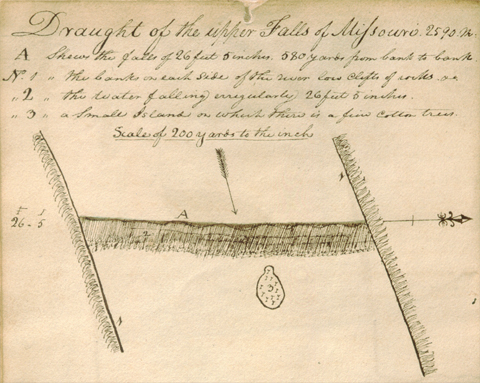 Draught of the upper Falls of Missouri. 2590 M.
A Shews the falls of 26 feet 5 inches. 580 yards from bank to bank
No. 1 " the banks on each side of the river low clefts of rocks
" 2 " the water falling irregularly 26 feet 5 inches.
" 3 " a Small Island on which there is a few cotton trees.
Scale of 200 yards to the inch
1
A
26 - 5
2
3
1
1